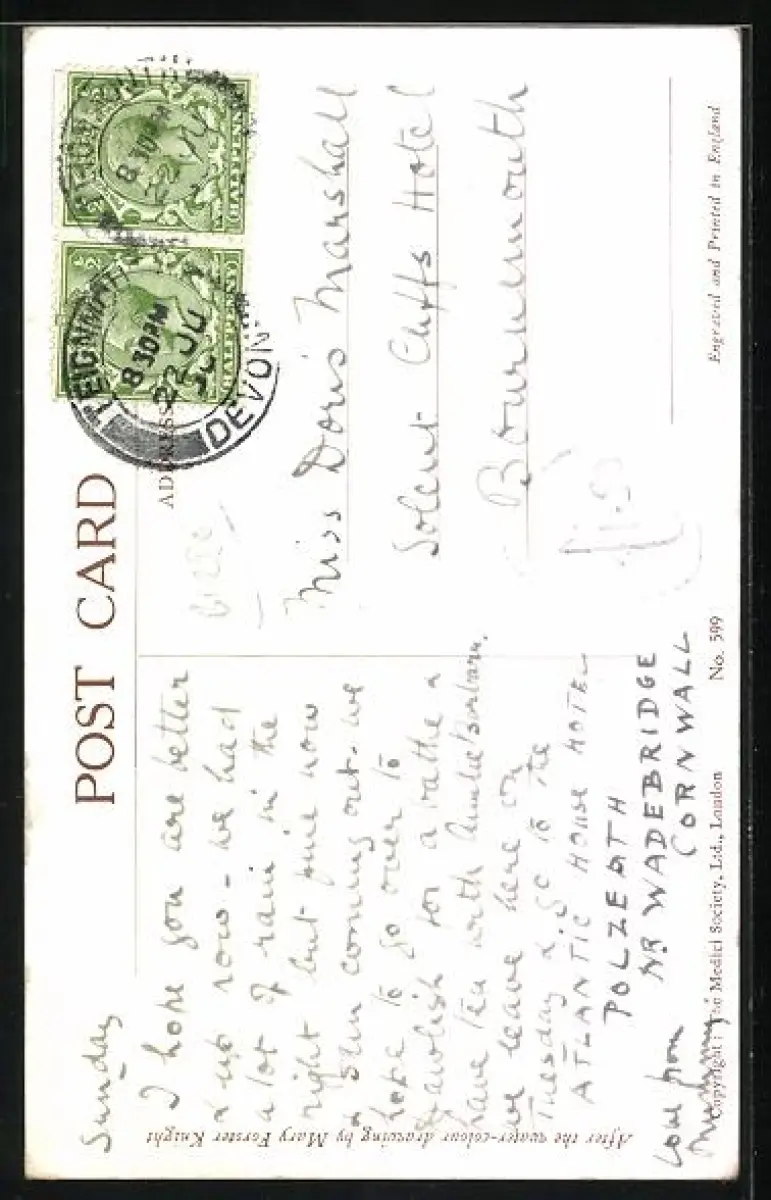 POST CARD
ADDRESS
TEIGNMOUTH
8 30 PM
22 JU
DEVON
HALFPENNY
HALFPENNY
Sunday
I hope you are better
& up now - we had
a lot of rain in the
night but fine now
& sun coming out - we
hope to go over to
Dawlish for a bathe &
have tea with Auntie Barbara.
we leave here on
Tuesday & go to the
ATLANTIC HOUSE HOTEL
POLZEATH
NR WADEBRIDGE
CORNWALL
Love from
Mummy
Miss Doris Marshall
Solent Cliffs Hotel
Bournemouth
After the water-colour drawing by Mary Forster Knight
Copyright The Medici Society, Ltd., London
No. 599
Engraved and Printed in England